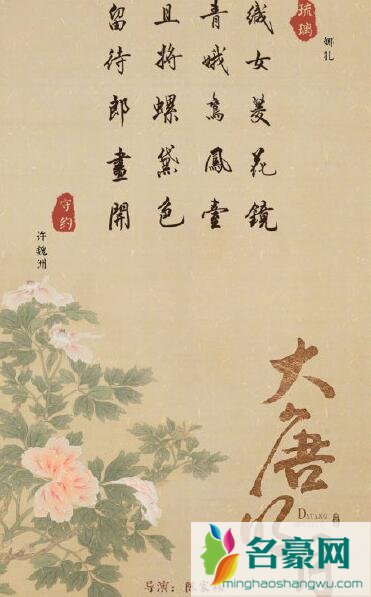 琉璃
娜扎
織女菱花鏡
青娥鸞鳳臺
且将螺黛色
留待郎畫開
守约
许魏洲
大唐
DATANG
导演：
名豪网
minghaoshangwu.com